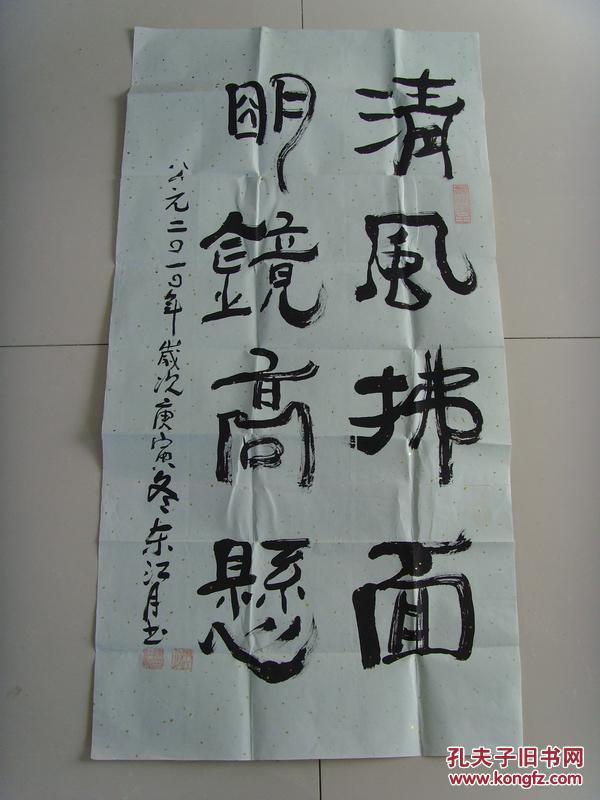 清風拂面
明鏡高懸
公元二〇一〇年歲次庚寅冬东江月书
孔夫子旧书网
www.kongfz.com